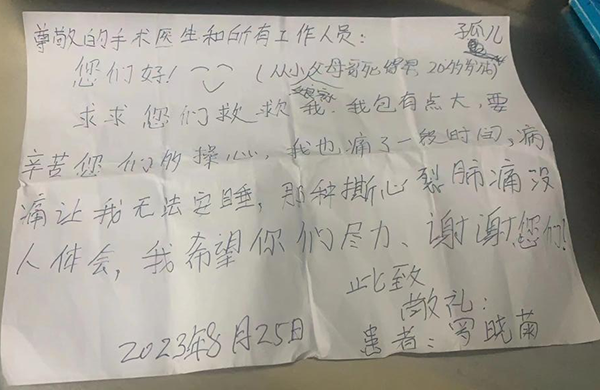 尊敬的手术医生和所有工作人员：
孤儿
您们好！（从小父母哥死 20多岁
求求您们救救我.我包有点大,要
辛苦您们多操心,我也痛了一段时间,病
痛让我无法定睡,那种撕心裂肺痛没
人体会,我希望你们尽力、谢谢您们!
此致
敬礼:
2023年8月25日
患者:罗晓菊